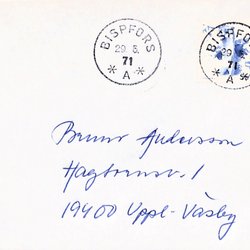 BISPFORS
29. 5.
71
* A *
BISPFORS
29. 5.
71
* A *
Bruno Andersson
Hagtornsv. 1
19400 Uppl-Väsby